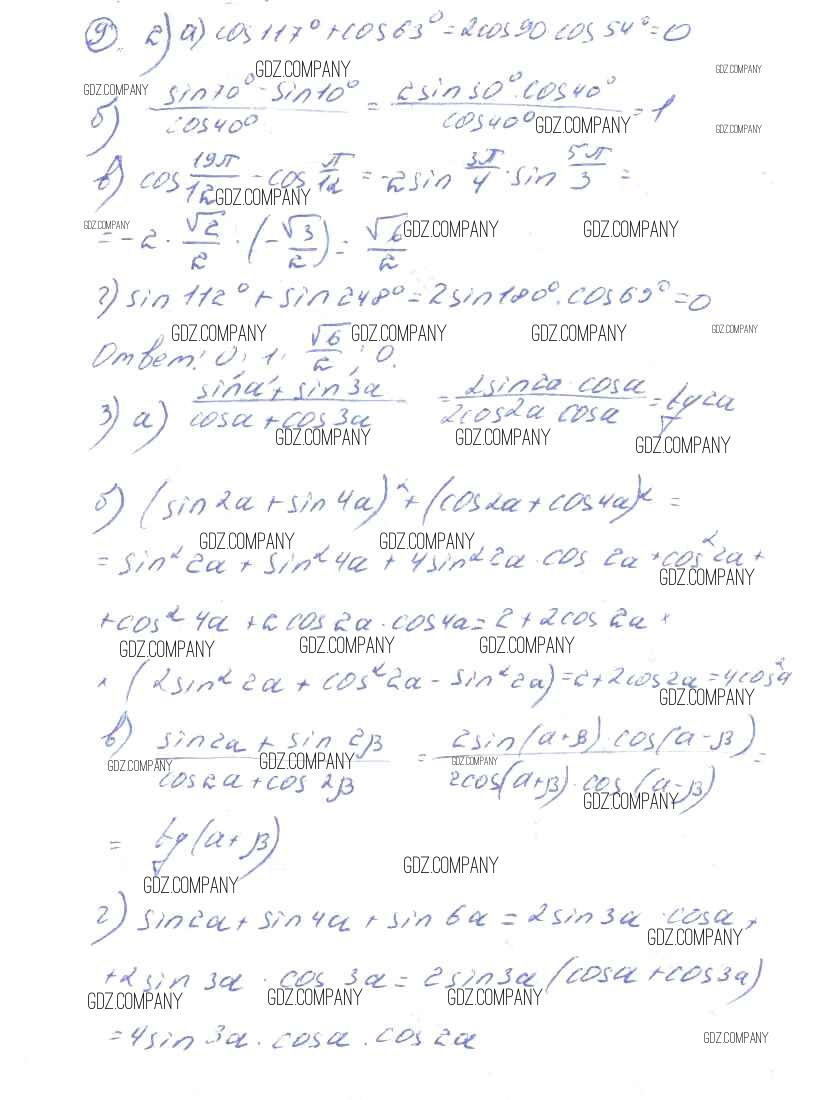 9) 2) а) cos 117° + cos 63° = 2cos 90 cos 54° = 0
GDZ.COMPANY GDZ.COMPANY GDZ.COMPANY
б) (sin 70° - sin 10°)/cos 40° = (2 sin 30° · cos 40°)/cos 40° = 1
GDZ.COMPANY GDZ.COMPANY
в) cos 19π/12 - cos π/12 = -2 sin 3π/4 · sin 5π/3 =
GDZ.COMPANY
GDZ.COMPANY GDZ.COMPANY GDZ.COMPANY
= -2 · √2/2 · (-√3/2) = √6/2
г) sin 112° + sin 248° = 2 sin 180° · cos 69° = 0
GDZ.COMPANY GDZ.COMPANY GDZ.COMPANY GDZ.COMPANY
Ответ: 0; 1; √6/2; 0.
3) а) (sin a + sin 3a)/(cos a + cos 3a) = (2 sin 2a · cos a)/(2cos 2a cos a) = tg 2a
GDZ.COMPANY GDZ.COMPANY GDZ.COMPANY
б) (sin 2a + sin 4a)² + (cos 2a + cos 4a)² =
GDZ.COMPANY GDZ.COMPANY
= sin² 2a + sin² 4a + 4 sin² 2a · cos 2a + cos² 2a +
GDZ.COMPANY
+ cos² 4a + 2 cos 2a · cos 4a = 2 + 2cos 2a ×
GDZ.COMPANY GDZ.COMPANY GDZ.COMPANY
× (2 sin² 2a + cos² 2a - sin² 2a) = 2 + 2cos 2a = 4cos² a
GDZ.COMPANY
в) (sin 2a + sin 2β)/(cos 2a + cos 2β) = (2 sin(a+β) · cos(a-β))/(2cos(a+β) · cos(a-β)) =
GDZ.COMPANY GDZ.COMPANY GDZ.COMPANY
GDZ.COMPANY
= tg(a+β)
GDZ.COMPANY
GDZ.COMPANY
г) sin 2a + sin 4a + sin 6a = 2 sin 3a · cos a +
GDZ.COMPANY
+ 2 sin 3a · cos 3a = 2 sin 3a (cos a + cos 3a)
GDZ.COMPANY GDZ.COMPANY GDZ.COMPANY
= 4 sin 3a · cos a · cos 2a
GDZ.COMPANY